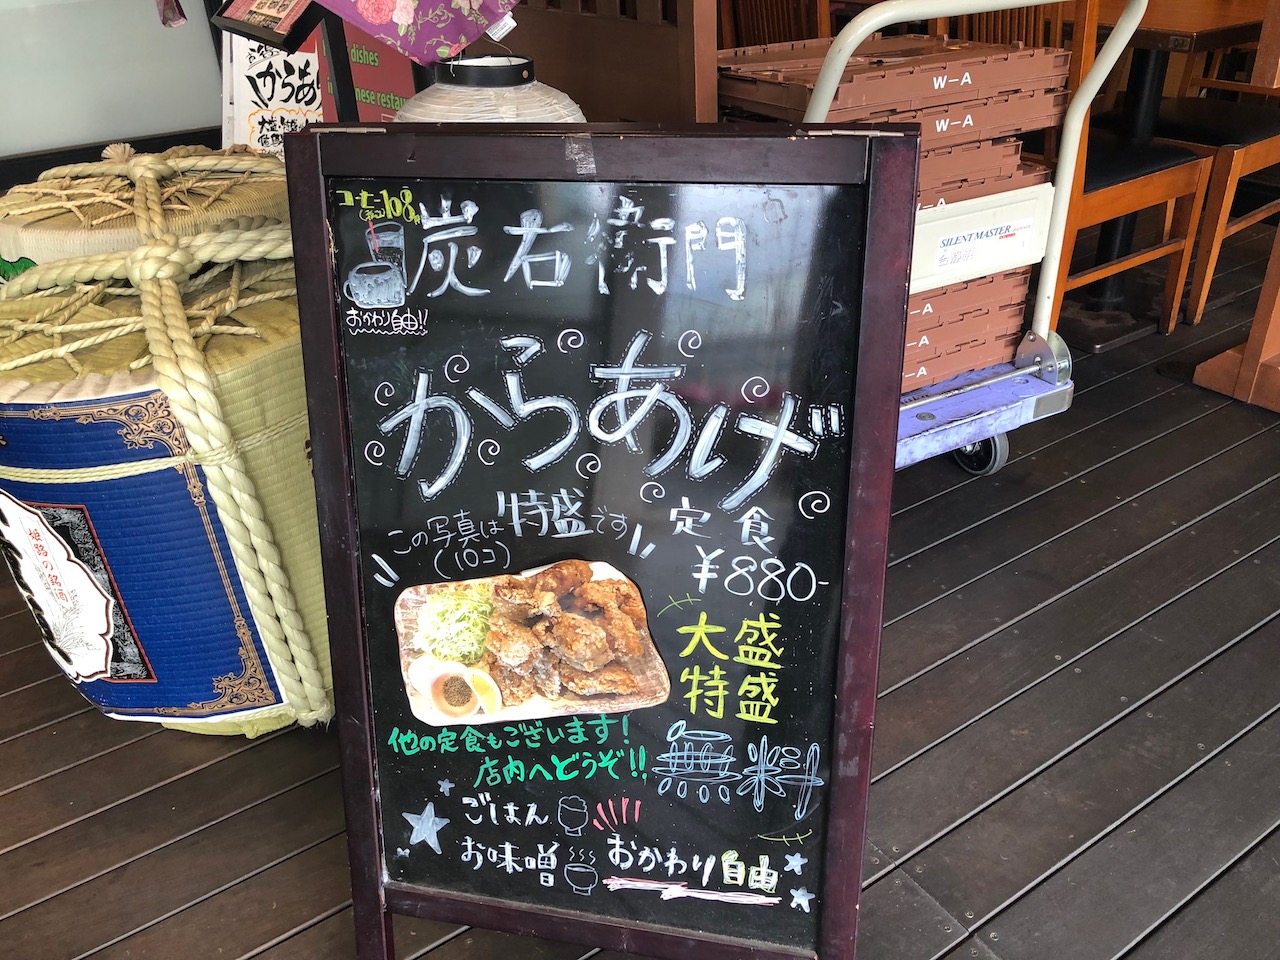 からあ
dishes
nese restau
W-A
W-A
W-A
SILENT MASTER
W-A
W-A
W-A
姫路の銘酒
コーヒー108
炭右衛門
おかわり自由!!
からあげ
定食
この写真は特盛です
(10コ)
¥880-
大盛
特盛
無料
他の定食もございます!
店内へどうぞ!!
ごはん
お味噌
おかわり自由